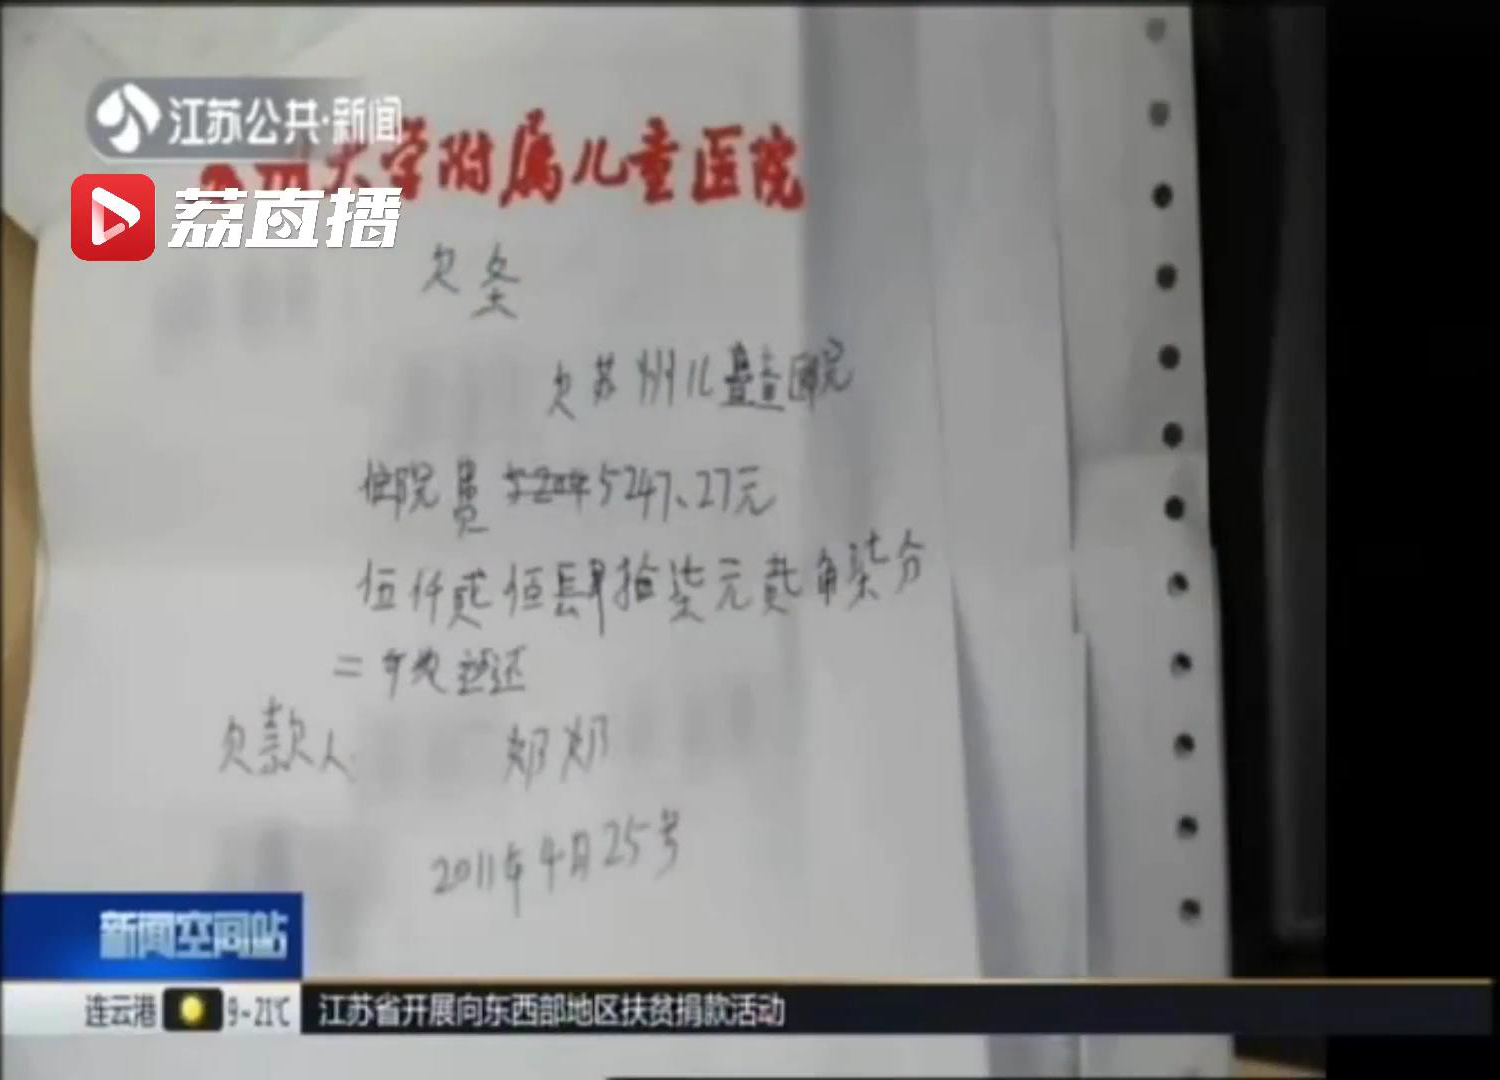 江苏公共·新闻
大学附属儿童医院
荔直播
欠条
欠苏州儿童医院
住院费 5247.27元
伍仟贰佰肆拾柒元贰角柒分
二年内还
欠款人 邓邓
2011年4月25号
新闻空间站
连云港 9-21℃ 江苏省开展向东西部地区扶贫捐款活动